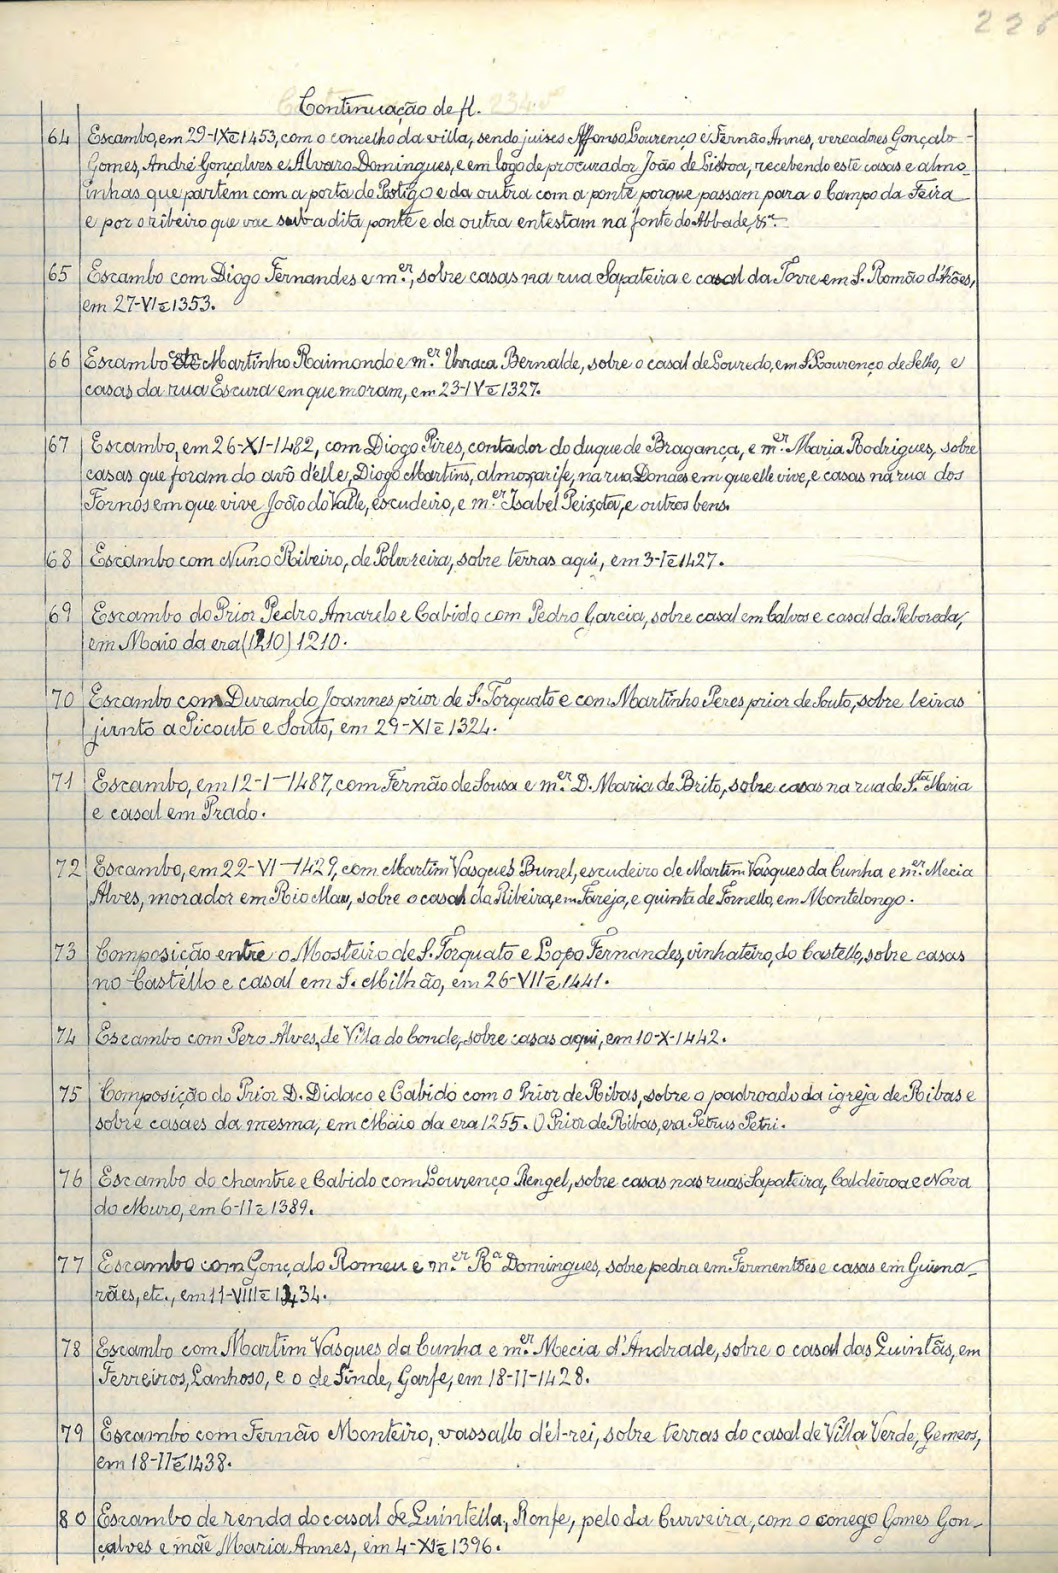 Continuação de fl. 234.vº
64 Escambo, em 29-IX-E1453, com o concelho da villa, sendo juises Affonso Lourenço e Fernão Annes, vereadores Gonçalo
Gomes, André Gonçalves e Alvaro Domingues, e em logo de procurador João de Lisboa, recebendo este casas e almo-
inhas que partem com a porta do Postigo e da outra com a ponte porque passam para o Campo da Feira
e por o ribeiro que vae sob a dita ponte e da outra entestam na fonte do Abbade, &ª.
65 Escambo com Diogo Fernandes e m.er, sobre casas na rua Sapateira e casal da Torre em S. Romão d'Arões,
em 27-VI-E1353.
66 Escambo Martinho Raimondo e m.er Urraca Bernalde, sobre o casal de Louredo, em S. Lourenço de Selho, e
casas da rua Escura em que moram, em 23-IV-E1327.
67 Escambo, em 26-XI-1482, com Diogo Pires, contador do duque de Bragança, e m.er Maria Rodrigues, sobre
casas que foram do avô d'elle, Diogo Martins, almoxarife, na rua Donaes em que elle vive, e casas na rua dos
Fornos em que vive João do Valle, escudeiro, e m.er Isabel Peixota, e outros bens.
68 Escambo com Nuno Ribeiro, de Polvoreira, sobre terras aqui, em 3-I-E1427.
69 Escambo do Prior Pedro Amarelo e Cabido com Pedro Garcia, sobre casal em Calvos e casal da Reboreda,
em Maio da era (1210) 1210.
70 Escambo com Durando Joannes prior de S. Torquato e com Martinho Peres prior de Souto, sobre leiras
junto a Picouto e Souto, em 29-XI-E1324.
71 Escambo, em 12-I-1487, com Fernão de Sousa e m.er D. Maria de Brito, sobre casas na rua de S.ta Maria
e casal em Prado.
72 Escambo, em 22-VI-1429, com Martim Vasques Bunel, escudeiro de Martim Vasques da Cunha e m.er Mecia
Alves, morador em Rio Mau, sobre o casal da Ribeira, em Fareja, e quinta de Fornello, em Montelongo.
73 Composição entre o Mosteiro de S. Torquato e Lopo Fernandes, vinhateiro, do Castello, sobre casas
no Castello e casal em S. Milhão, em 26-VII-E1441.
74 Escambo com Pero Alves, de Villa do Conde, sobre casas aqui, em 10-X-1442.
75 Composição do Prior D. Didaco e Cabido com o Prior de Ribas, sobre o padroado da igreja de Ribas e
sobre casaes da mesma, em Maio da era 1255. O Prior de Ribas, era Petrus Petri.
76 Escambo do chantre e Cabido com Lourenço Rengel, sobre casas nas ruas Sapateira, Caldeiroa e Nova
do Muro, em 6-II-E1389.
77 Escambo com Gonçalo Romeu e m.er Rª Domingues, sobre pedra em Fermentões e casas em Guima-
rães, etc., em 11-VIII-E1434.
78 Escambo com Martim Vasques da Cunha e m.er Mecia d'Andrade, sobre o casal das Quintãs, em
Ferreiros, Lanhoso, e o de Sinde, Garfe, em 18-II-1428.
79 Escambo com Fernão Monteiro, vassallo d'el-rei, sobre terras do casal de Villa Verde, Gemeos,
em 18-II-E1438.
80 Escambo de renda do casal de Quintella, Ronfe, pelo da Curveira, com o conego Gomes Gon-
çalves e mãe Maria Annes, em 4-XI-E1396.